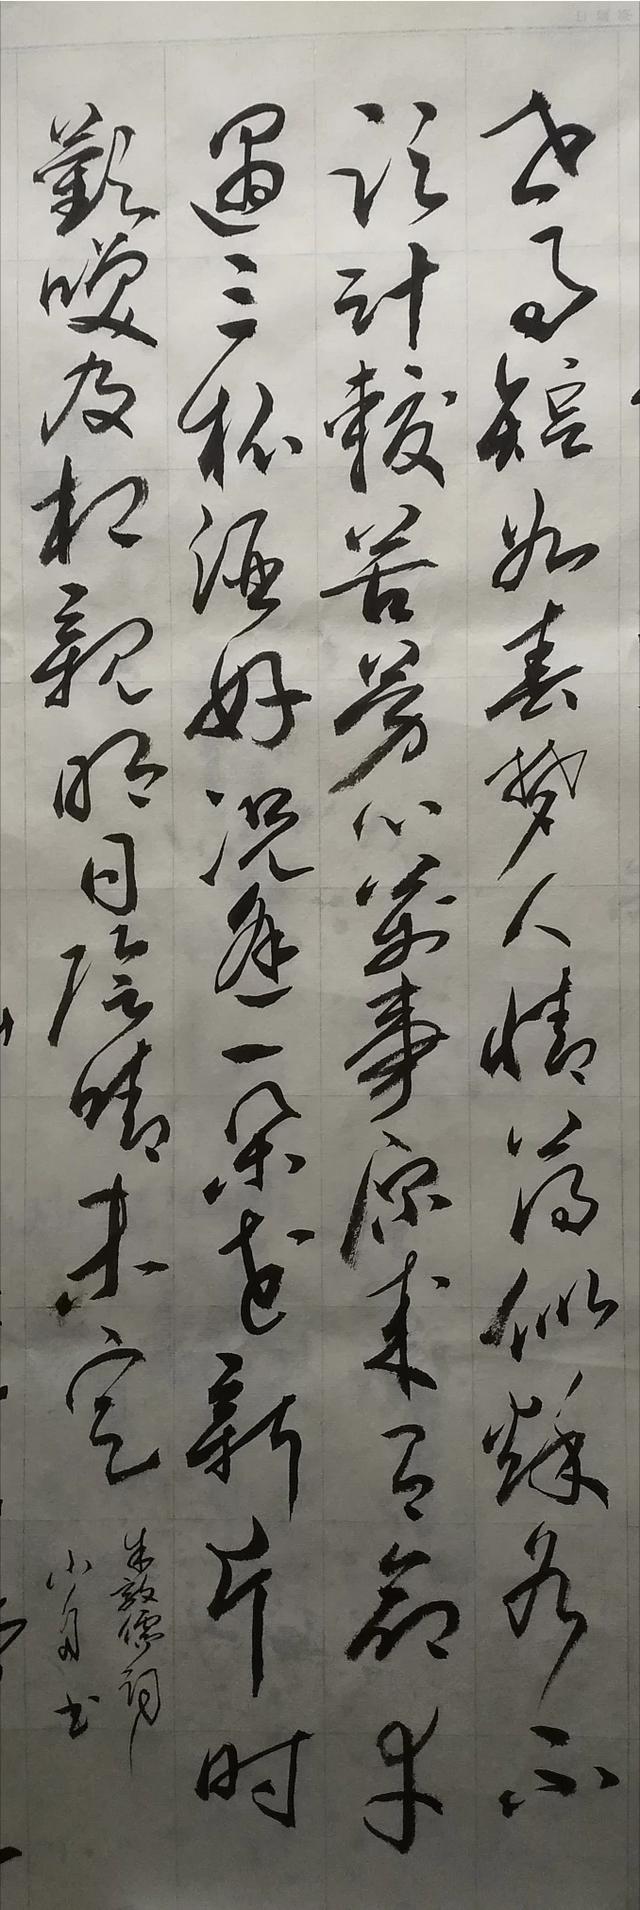 世事短如春梦人情薄似秌云不
须计較苦劳心萬事原来有命幸
遇三杯酒好况逢一朵花新片时
歡咲且相親明日陰晴未定
朱敦儒词
小 书